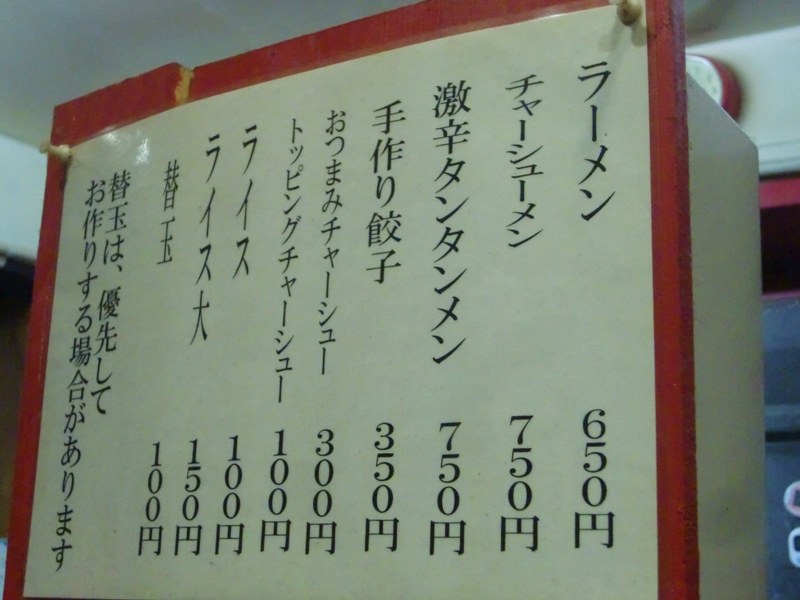 ラーメン 650円
チャーシューメン 750円
激辛タンタンメン 750円
手作り餃子 350円
おつまみチャーシュー 300円
トッピングチャーシュー 100円
ライス 100円
ライス大 150円
替玉 100円
替玉は、優先して
お作りする場合があります